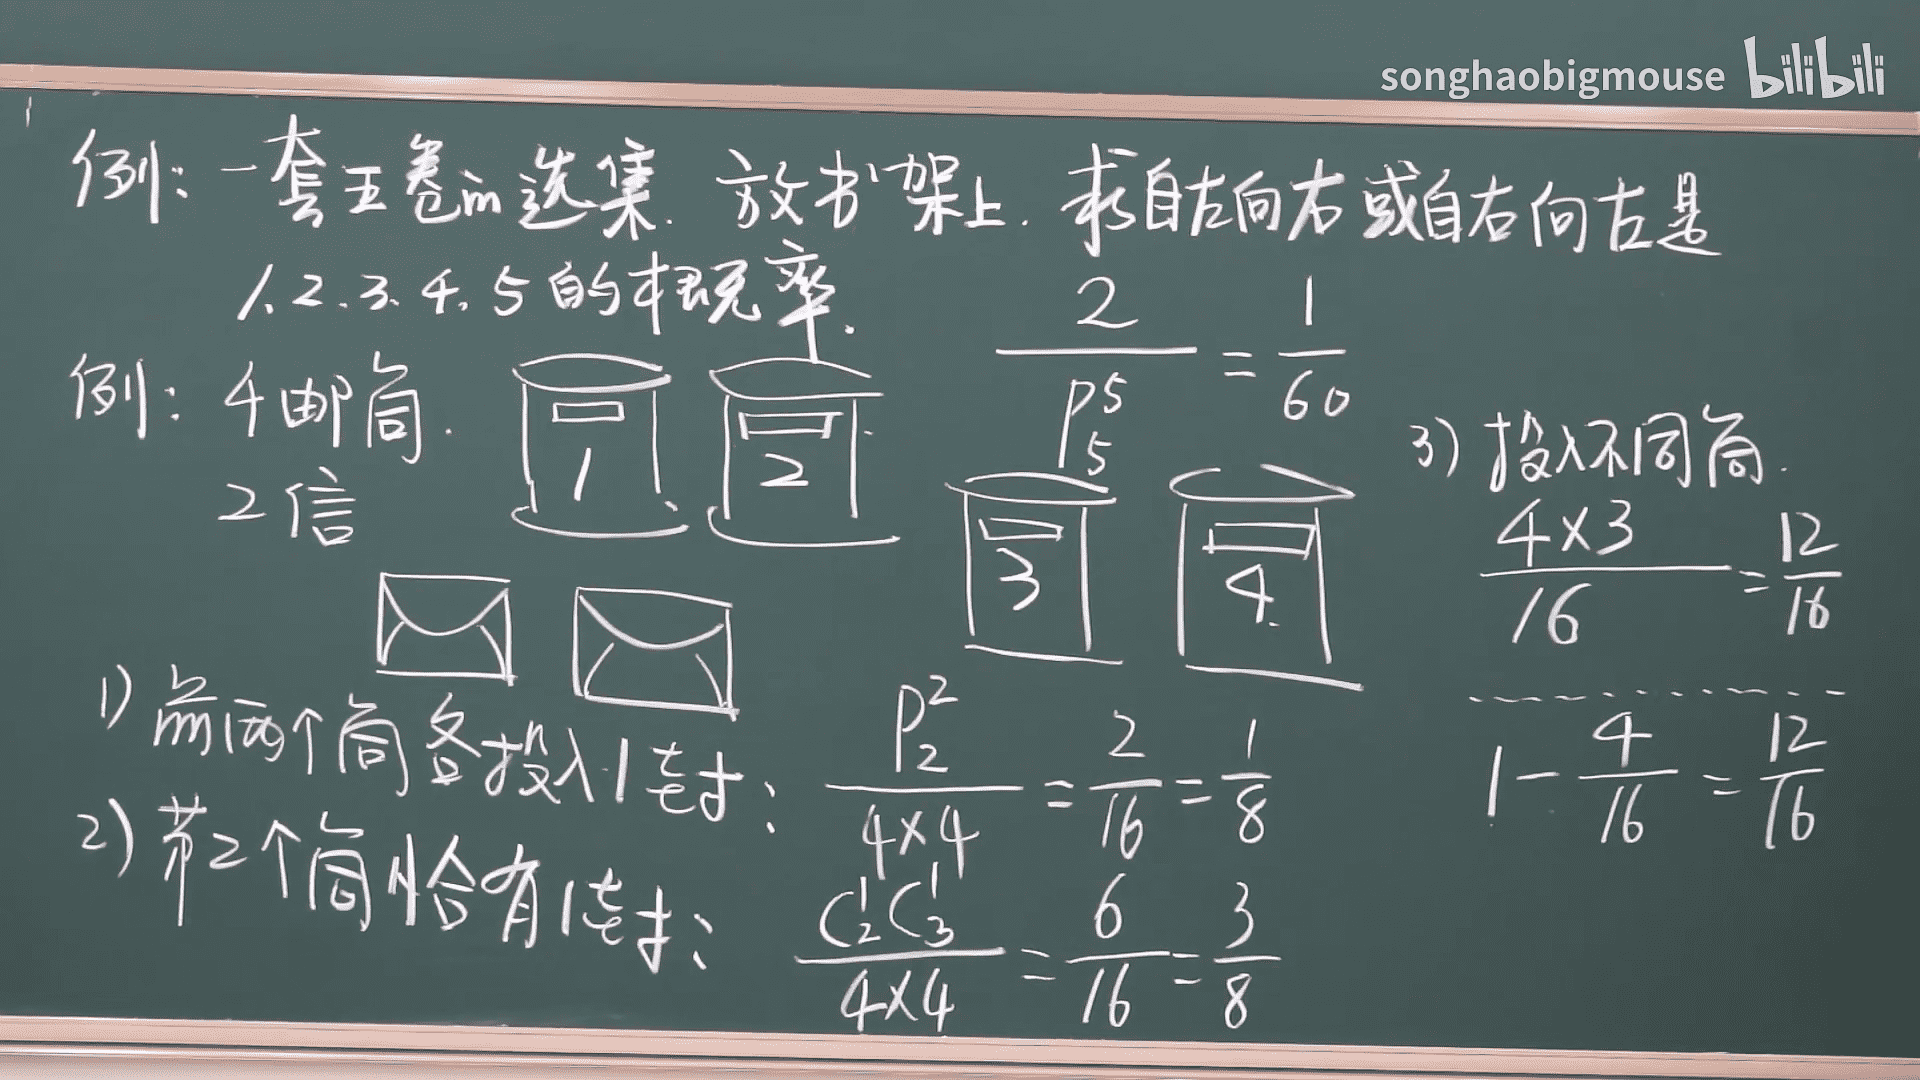 songhaobigmouse bilibili
例：一套五卷的选集．放书架上．求自左向右或自右向左是
1、2、3、4、5的概率．
2/P_5^5 = 1/60
例：4邮筒．
2信
1
2
3
4
1) 前两个筒各投入1封： P_2^2/4×4 = 2/16 = 1/8
2) 第2个筒恰有1封： C_2^1C_3^1/4×4 = 6/16 = 3/8
3) 投入不同筒．
4×3/16 = 12/16
1 − 4/16 = 12/16